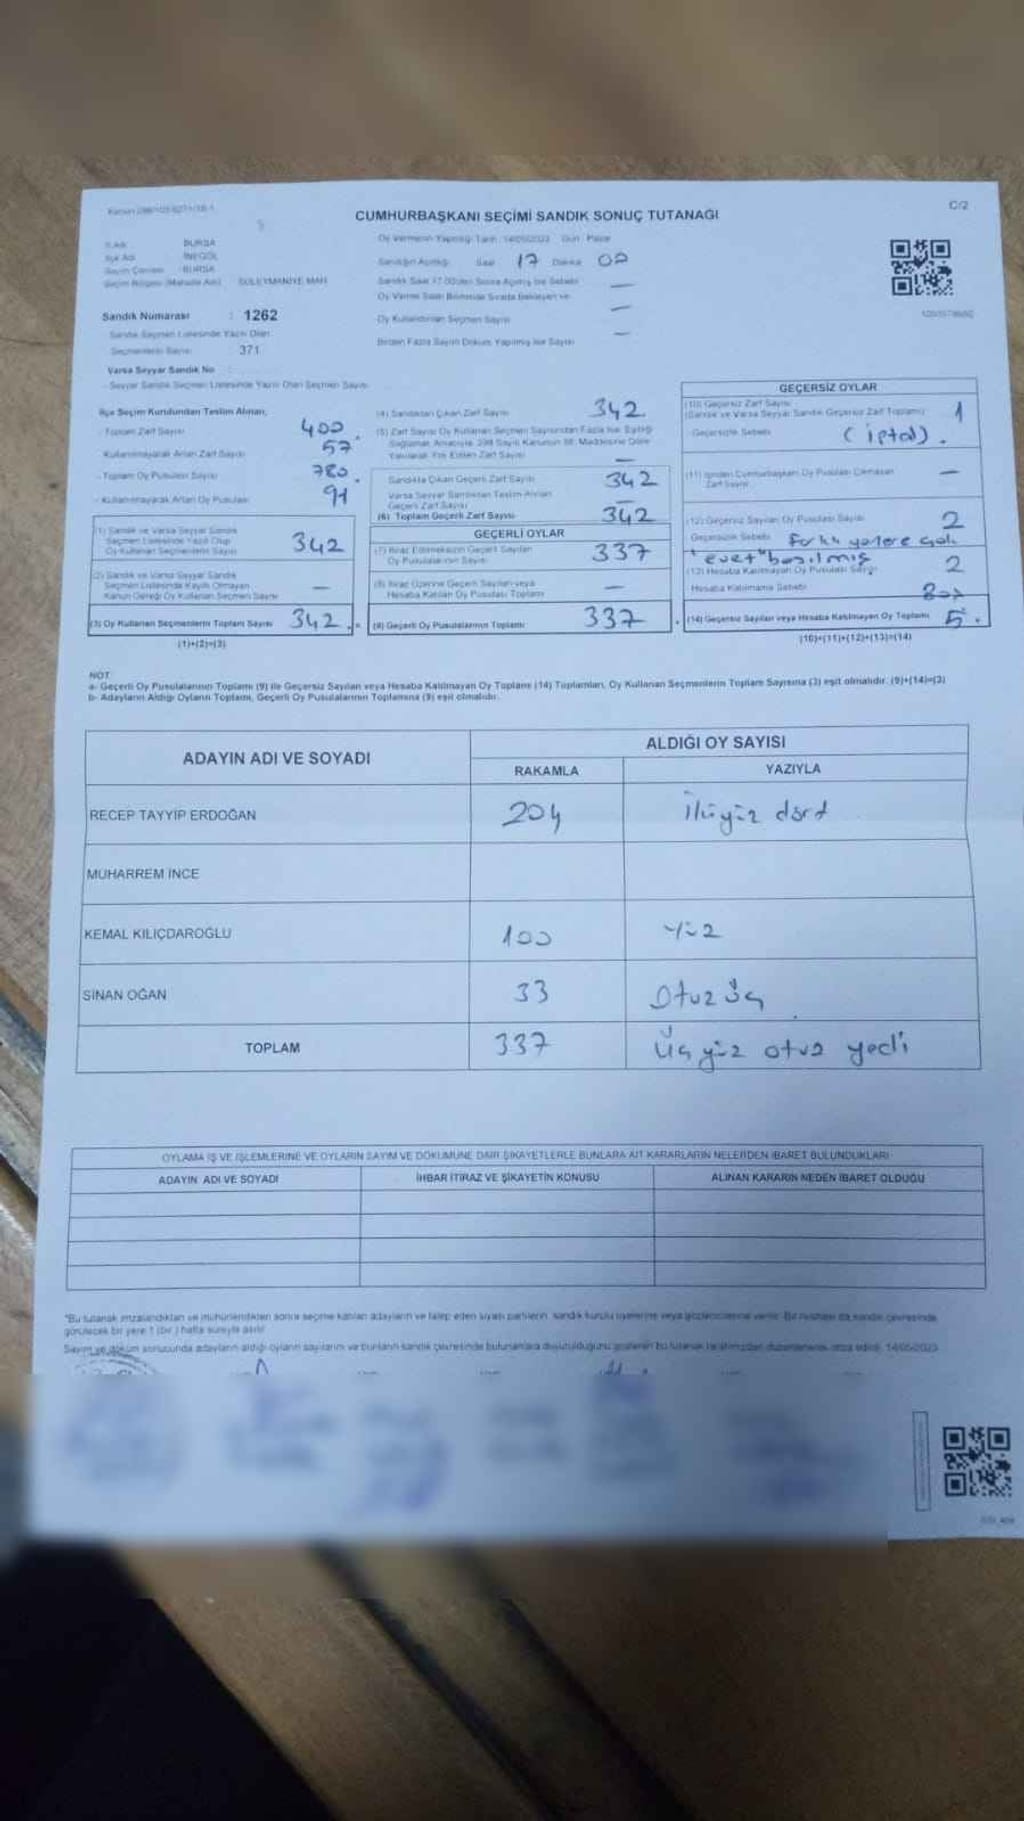 C/2
CUMHURBAŞKANI SEÇİMİ SANDIK SONUÇ TUTANAĞI
İl Adı BURSA
İlçe Adı İNEGÖL
Seçim Çevresi BURSA
Seçim Bölgesi (Mahalle Adı) SÜLEYMANİYE MAH.
Sandık Numarası : 1262
Sandık Seçmen Listesinde Yazılı Olan
Seçmenlerin Sayısı 371
Varsa Seyyar Sandık No :
- Seyyar Sandık Seçmen Listesinde Yazılı Olan Seçmen Sayısı
Oy Vermenin Yapıldığı Tarih: 14/05/2023 Gün: Pazar
Sandığın Açıldığı Saat 17 Dakika 02
Oy Kullandırılan Seçmen Sayısı —
Birden Fazla Sayım Döküm Yapılmış İse Sayısı —
İlçe Seçim Kurulundan Teslim Alınan;
- Toplam Zarf Sayısı 400
Kullanılmayarak Artan Zarf Sayısı 57
- Toplam Oy Pusulası Sayısı 780
- Kullanılmayarak Artan Oy Pusulası 91
(1) Sandık ve Varsa Seyyar Sandık
Seçmen Listesinde Yazılı Olup
Oy Kullanan Seçmenlerin Sayısı 342
(2) Sandık ve Varsa Seyyar Sandık
Seçmen Listesinde Kayıtlı Olmayan
Kanun Gereği Oy Kullanan Seçmen Sayısı —
(3) Oy Kullanan Seçmenlerin Toplam Sayısı 342
(1)+(2)=(3)
(4) Sandıktan Çıkan Zarf Sayısı 342
(5) Zarf Sayısı Oy Kullanan Seçmen Sayısından Fazla İse Eşitliği
Sağlamak Amacıyla 298 Sayılı Kanunun 98. Maddesine Göre
Yakılarak Yok Edilen Zarf Sayısı —
Sandıkta Çıkan Geçerli Zarf Sayısı 342
Varsa Seyyar Sandıktan Teslim Alınan
Geçerli Zarf Sayısı —
(6) Toplam Geçerli Zarf Sayısı 342
GEÇERLİ OYLAR
(7) İtiraz Edilmeksizin Geçerli Sayılan
Oy Pusulalarının Sayısı 337
(8) İtiraz Üzerine Geçerli Sayılan veya
Hesaba Katılan Oy Pusulası Toplamı —
(9) Geçerli Oy Pusulalarının Toplamı 337
GEÇERSİZ OYLAR
(10) Geçersiz Zarf Sayısı
(Sandık ve Varsa Seyyar Sandık Geçersiz Zarf Toplamı) 1
Geçersizlik Sebebi (iptal).
(11) İçinden Cumhurbaşkanı Oy Pusulası Çıkmayan
Zarf Sayısı —
(12) Geçersiz Sayılan Oy Pusulası Sayısı 2
Geçersizlik Sebebi farklı yerlere
"evet" basılmış
(13) Hesaba Katılmayan Oy Pusulası Sayısı 2
Hesaba Katılmama Sebebi
(14) Geçersiz Sayılan veya Hesaba Katılmayan Oy Toplamı 5.
(10)+(11)+(12)+(13)=(14)
NOT
a- Geçerli Oy Pusulalarının Toplamı (9) ile Geçersiz Sayılan veya Hesaba Katılmayan Oy Toplamı (14) Toplamları, Oy Kullanan Seçmenlerin Toplam Sayısına (3) eşit olmalıdır. (9)+(14)=(3)
b- Adayların Aldığı Oyların Toplamı, Geçerli Oy Pusulalarının Toplamına (9) eşit olmalıdır.
ADAYIN ADI VE SOYADI
ALDIĞI OY SAYISI
RAKAMLA YAZIYLA
RECEP TAYYİP ERDOĞAN 204 ikiyüz dört
MUHARREM İNCE
KEMAL KILIÇDAROĞLU 100 Yüz
SİNAN OĞAN 33 Otuz üç
TOPLAM 337 Üçyüz otuz yedi
OYLAMA İŞ VE İŞLEMLERİNE VE OYLARIN SAYIM VE DÖKÜMÜNE DAİR ŞİKAYETLERLE BUNLARA AİT KARARLARIN NELERDEN İBARET BULUNDUKLARI
ADAYIN ADI VE SOYADI İHBAR İTİRAZ VE ŞİKAYETİN KONUSU ALINAN KARARIN NEDEN İBARET OLDUĞU
*Bu tutanak imzalandıktan ve mühürlendikten sonra seçime katılan adayların ve talep eden siyasi partilerin, sandık kurulu üyelerine veya gözlemcilerine verilir. Bir nüshası da sandık çevresinde
görülecek bir yere 1 (bir) hafta süreyle asılır.